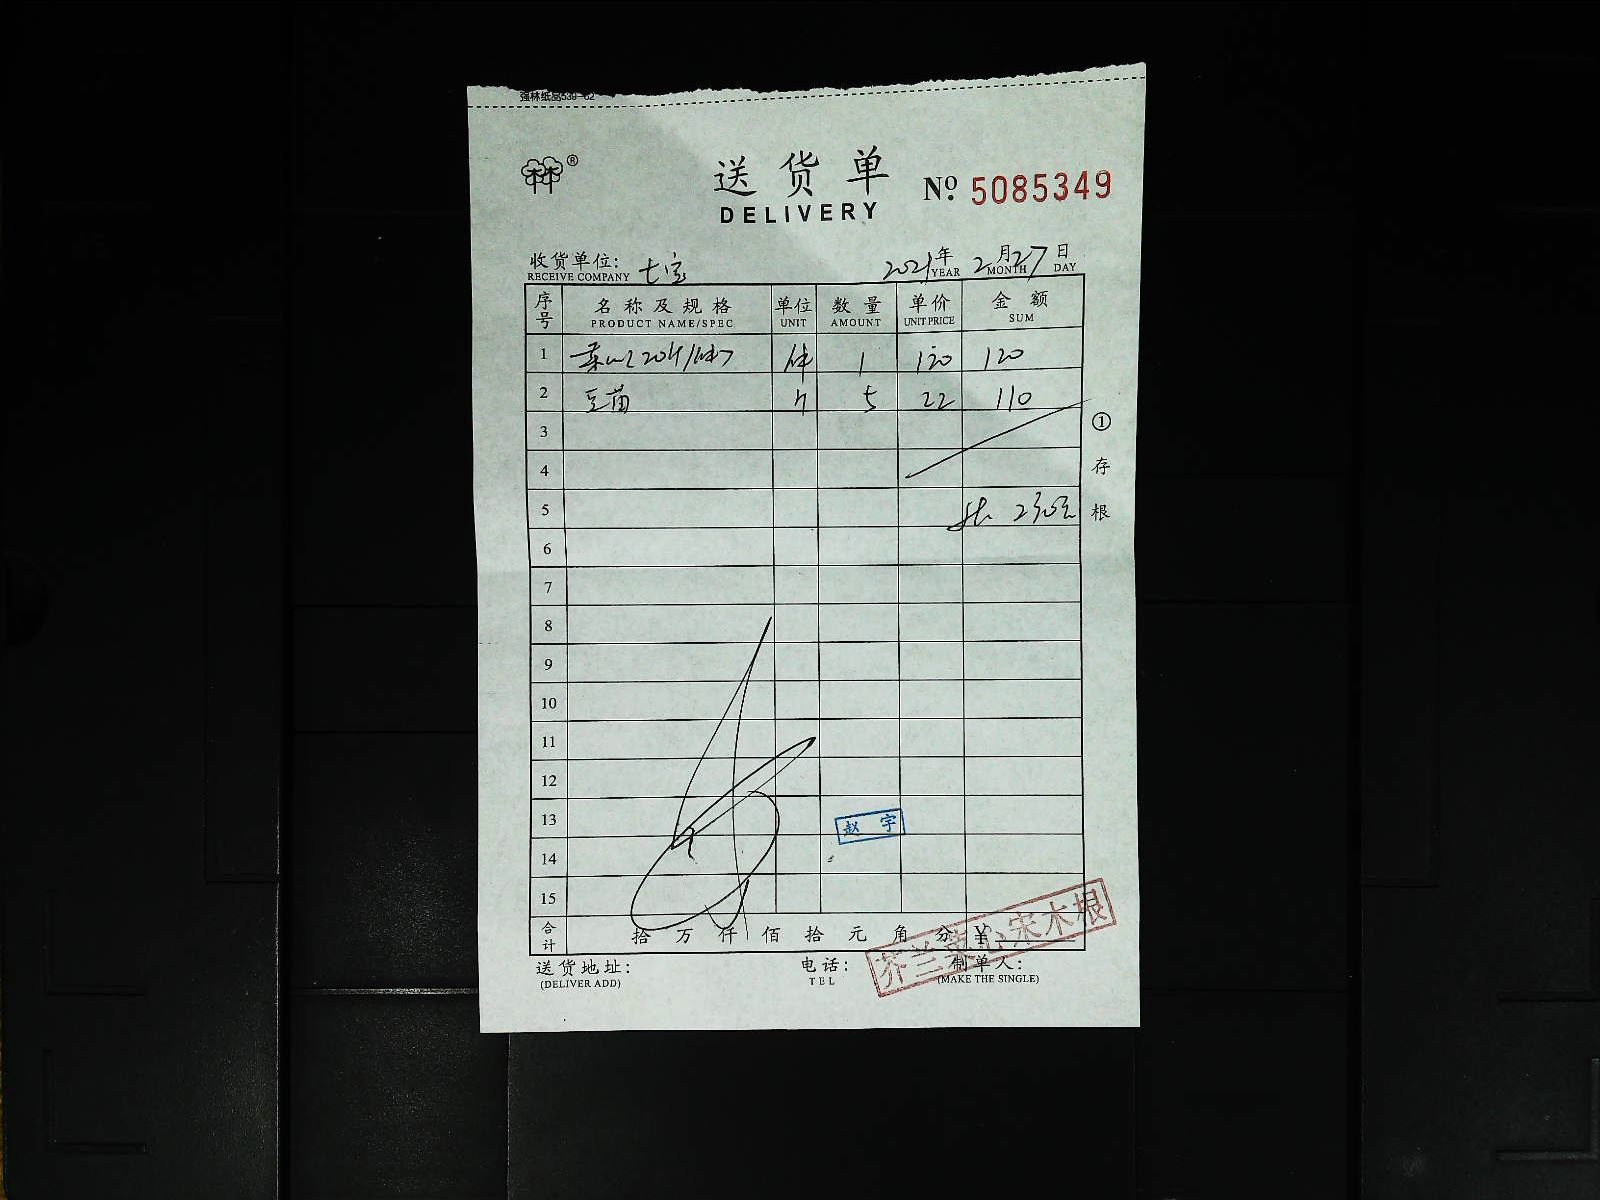 送货单
DELIVERY
No. 5085349
收货单位: 七宝 2021年2月27日
RECEIVE COMPANY YEAR MONTH DAY
序号 名称及规格 单位 数量 单价 金额
PRODUCT NAME/SPEC UNIT AMOUNT UNIT PRICE SUM
1 菜心(20斤/件) 件 1 120 120
2 豆苗 斤 5 22 110
3
4
5 230元
6
7
8
9
10
11
12
13 赵宇
14
15
合计 拾 万 仟 佰 拾 元 角 分 ¥
①存根
芥兰菜心宋木根
送货地址: 电话: 制单人:
(DELIVER ADD) TEL (MAKE THE SINGLE)